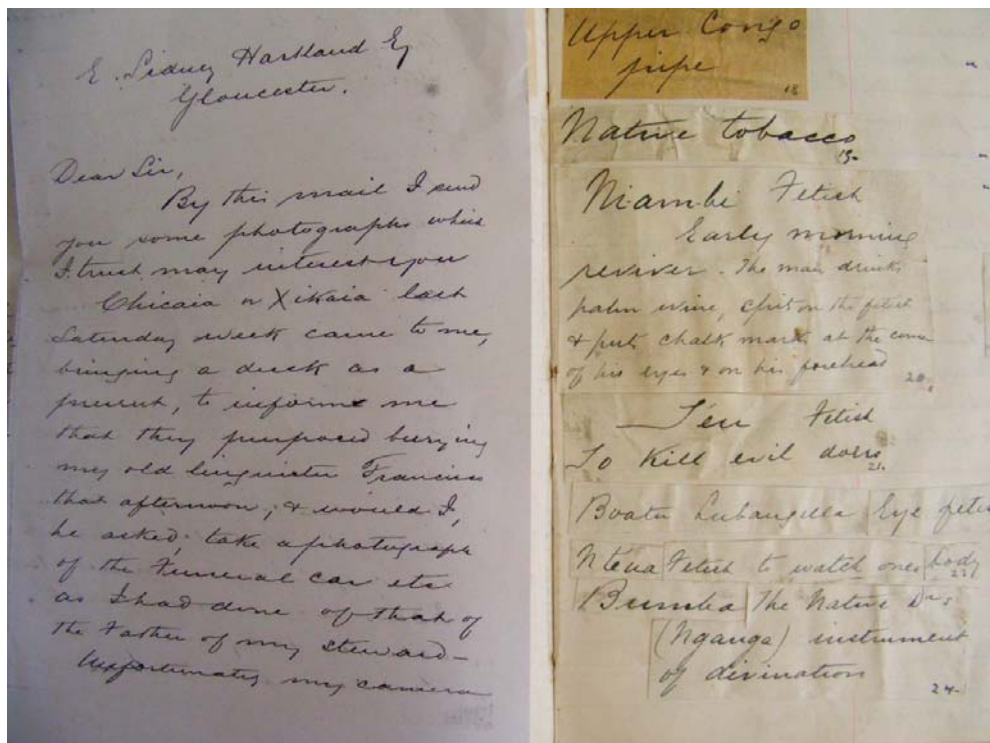 E. Sidney Hartland Eq
Gloucester.
Dear Sir,
By this mail I send
you some photographs which
I trust may interest you
Chicaia or Xikaia last
Saturday week came to me,
bringing a duck as a
present, to inform me
that they purposed burying
my old linguister Francisco
that afternoon, & would I,
he asked, take a photograph
of the Funeral car etc
as I had done of that of
the Father of my steward –
Unfortunately my camera
Upper Congo
pipe
18
Native tobacco
19.
Niambi Fetish
Early morning
reviver. The man drinks
palm wine, spits on the fetish
& puts chalk marks at the corner
of his eyes & on his forehead
20.
Fetish
To Kill evil doers
21.
Boatu Eye
Fetish to watch ones body
Bumba The Native Dr.s
(Nganga) instrument
of divination
24.